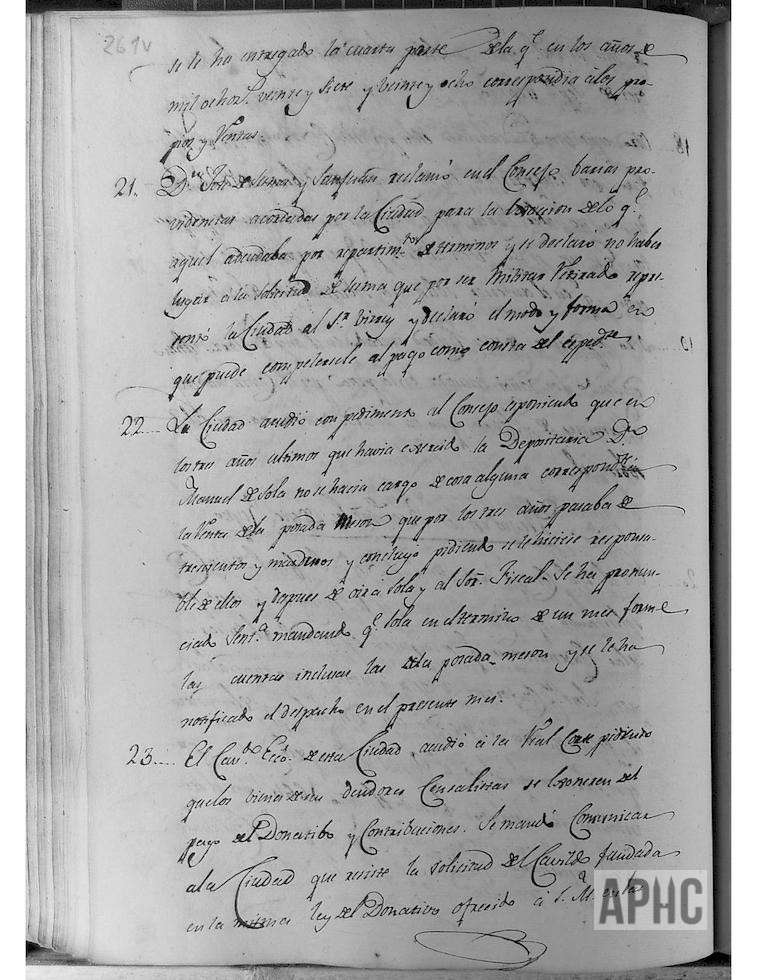 261v
se le ha entregado la cuarta parte de la q.e en los años de
mil ochos.s veinte y siete y veinte y ocho correspondia á los pro-
pios y Rentas.
21. D.n José de Sesma y Sanjulian reclamó en el Consejo barias pro-
videncias acordadas por la Ciudad para la de lo q.e
aquel adeudaba por repartim.tos de terminos y se declaró no haber
lugar á la solicitud de Sesma que por ser Militar Retirado repre-
sentó la Ciudad al S.r Virrey y declaró el modo y forma en
que puede compelersele al pago como consta del exped.te
22.... La Ciudad acudió con pedimento al Consejo esponiendo que en
los tres años ultimos que havia exercido la Depositaria D.n
Manuel de Sola no se hacia cargo de cosa alguna correspond.te á
la Renta de la posada Meson que por los tres años pasaba de
trescientos y concluyó pidiendo se le hiciese responsa-
ble de ellos y despues de oir á Sola y al Sor. Fiscal. Se ha pronun-
ciado Sent.a mandando q.e Sola en el termino de un mes forme
las cuentas inclusas las de la posada meson y se le ha
notificado el despacho en el presente mes.
23.... El Cav.do Ecc.o de esta Ciudad, acudió á la Real Corte pidiendo
que los bienes de sus deudores Censalistas se esoneren del
pago del Donatibo y Contribuciones. Se mandó Comunicar
a la Ciudad que resiste la solicitud del Cavildo fundada
en la misma ley del Donativo ofrecido á S. M. en las
APHC